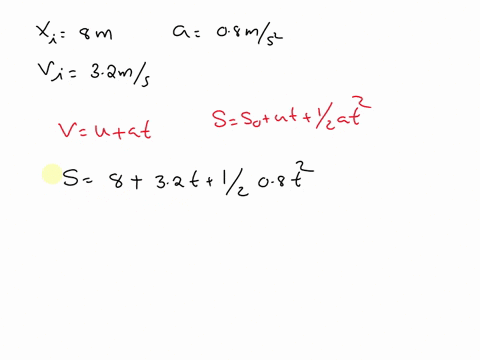 xᵢ = 8m a = 0.8m/s²
Vᵢ = 3.2m/s
V = u + at S = S₀ + ut + 1/2 at²
S = 8 + 3.2t + 1/2 0.8t²